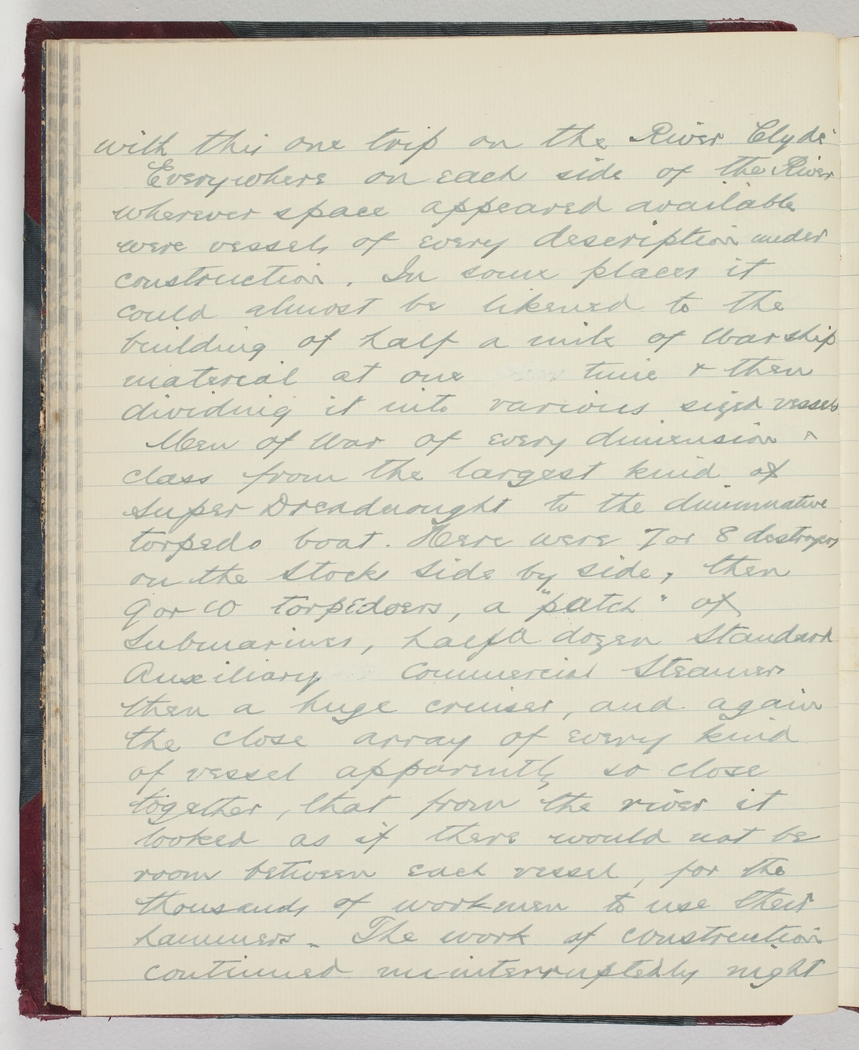 with this one trip on the River Clyde
Everywhere on each side of the River
wherever space appeared available
were vessels of every description under
construction. In some places it
could almost be likened to the
building of half a mile of Warship
material at one time & then
dividing it into various sized vessels
Men of War of every dimension ^
class from the largest kind of
Super Dreadnought to the diminnative
torpedo boat. Here were 7 or 8 destroyers
on the stocks side by side, then
9 or 10 torpedoers, a "patch" of
Submarines, half a dozen Standard
Auxiliary Commercial Steamers
then a huge cruiser, and again
the close array of every kind
of vessel apparently so close
together, that from the river it
looked as if there would not be
room between each vessel, for the
thousands of workmen to use their
hammers. The work of construction
continued uninterruptedly night